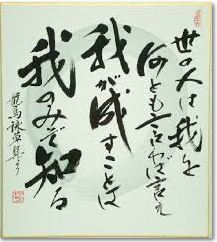 世の人は我を
何とも言わば言え
我が成すことは
我のみぞ知る
龍馬詠草